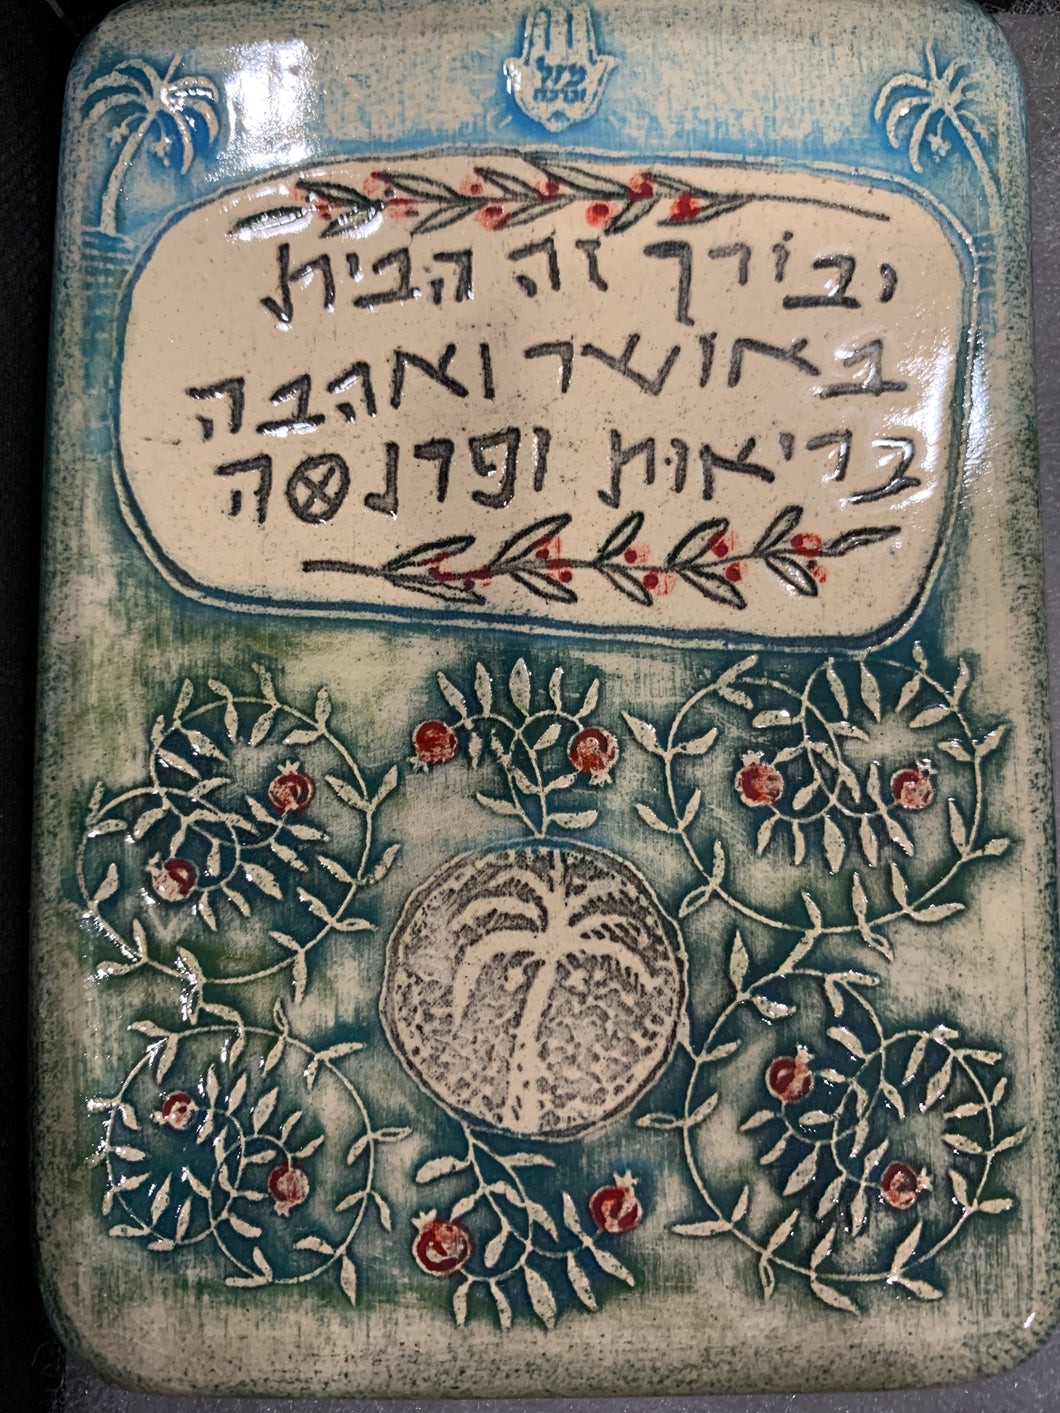 מזל
וברכה
יבורך זה הבית
באושר ואהבה
בריאות ופרנסה